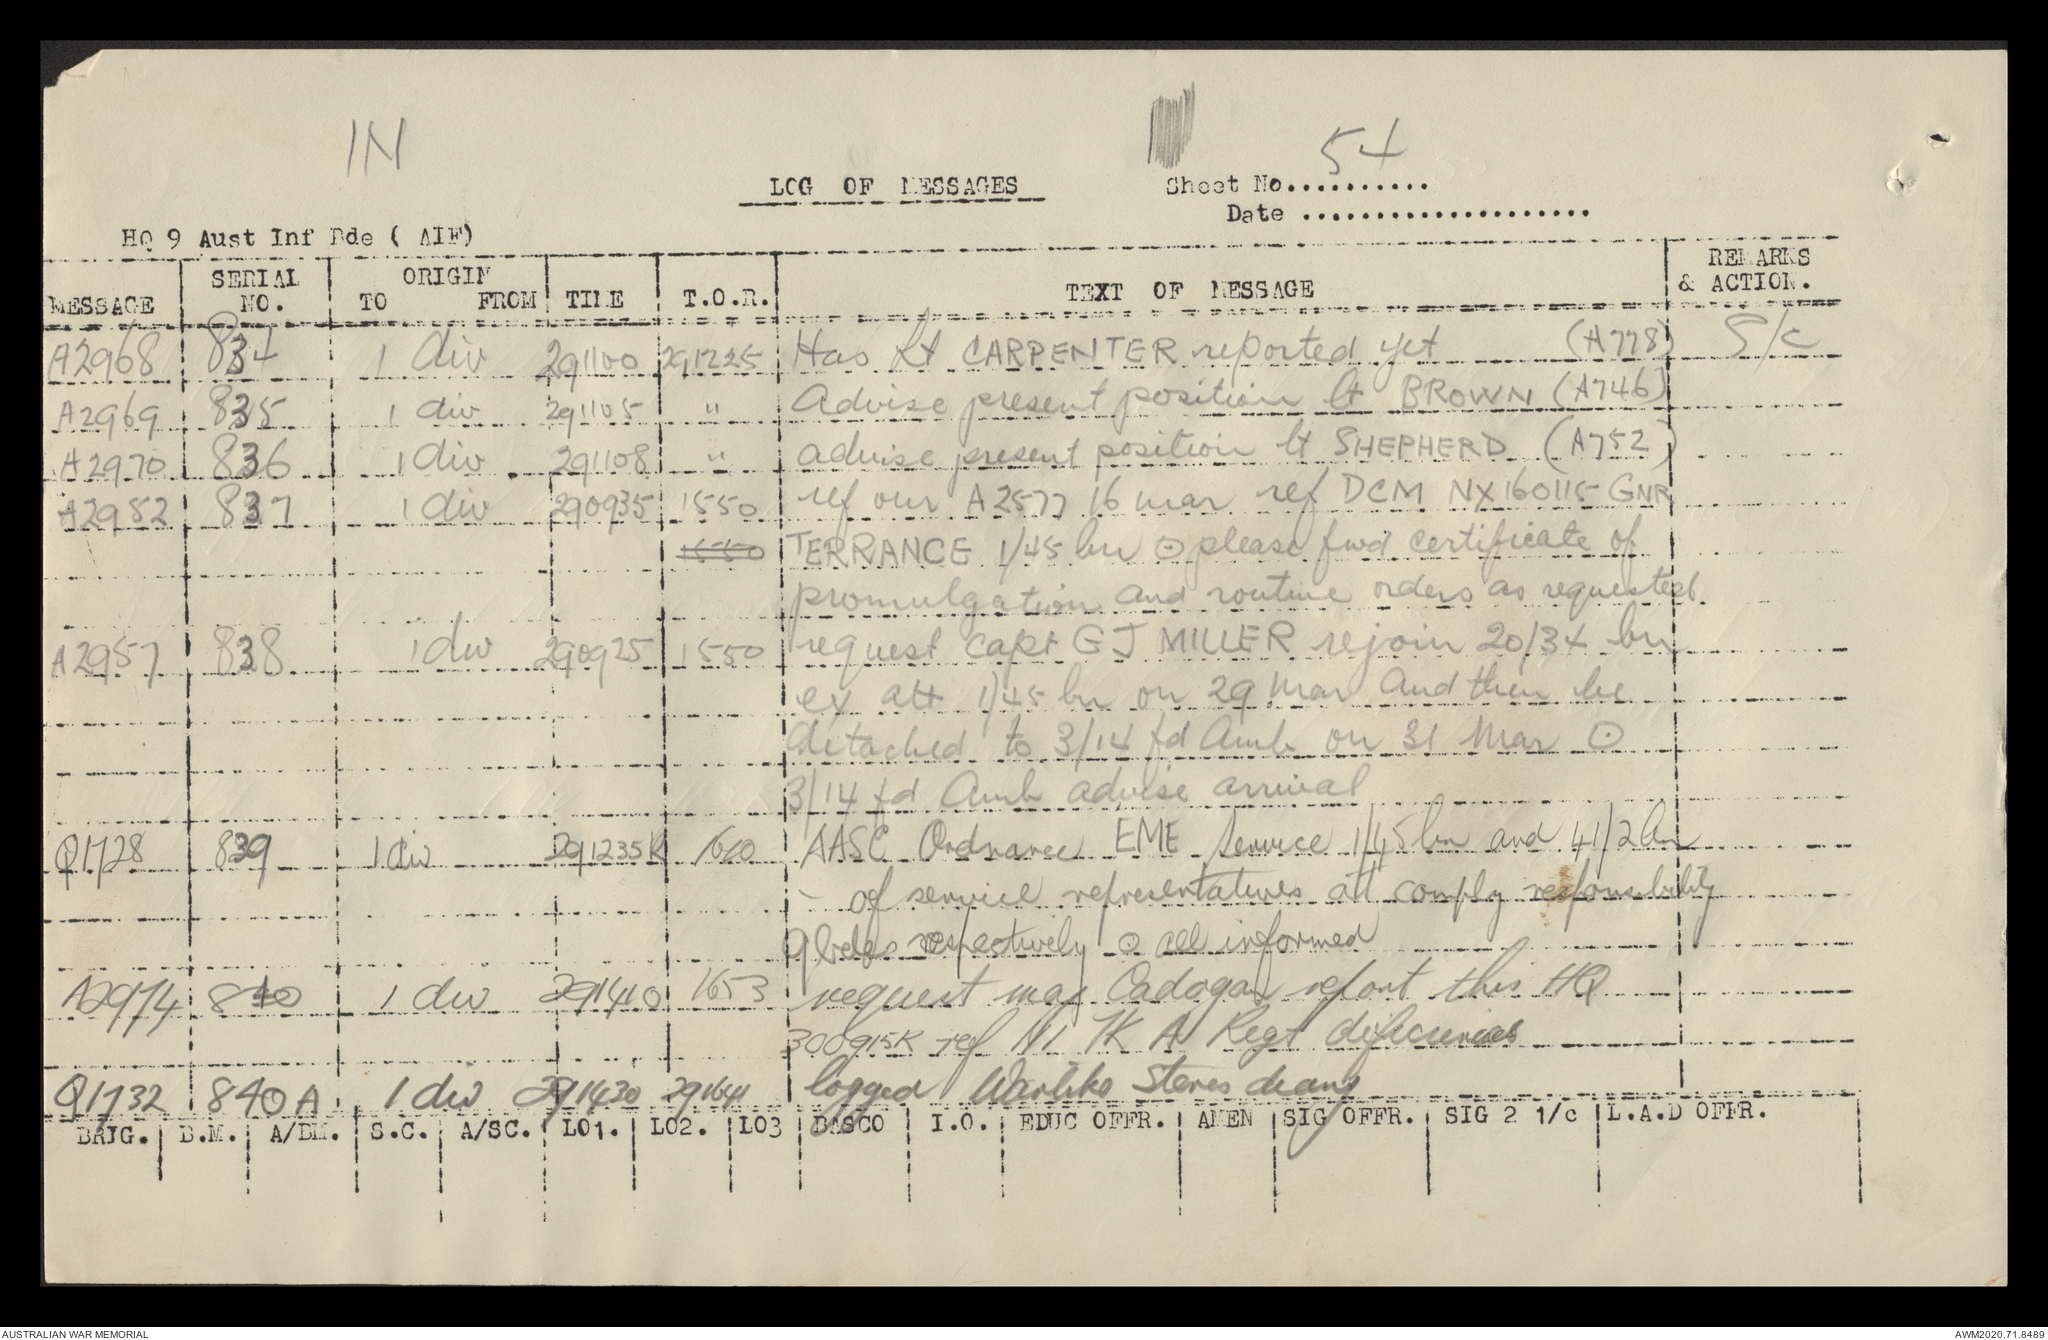 IN
LOG OF MESSAGES
Sheet No.......... 54
Date ....................
HQ 9 Aust Inf Bde ( AIF)
MESSAGE SERIAL NO. ORIGIN TO FROM TIME T.O.R. TEXT OF MESSAGE REMARKS & ACTION.
A2968 834 1 div 291100 291225 Has Lt CARPENTER reported yet (A778) S/c
A2969 835 1 div 291105 " Advise present position Lt BROWN (A746)
A2970 836 1 div 291108 " advise present position Lt SHEPHERD (A752)
A2952 837 1 div 290935 1550 ref our A2577 16 mar ref DCM NX160115 GNR
1550 TERRANCE 1/45 bn ⊙ please fwd certificate of
promulgation and routine orders as requested.
A2957 838 1 div 290925 1550 request Capt G J MILLER rejoin 20/34 bn
ex att 1/45 bn on 29 Mar and then be
detached to 3/14 fd Amb on 31 Mar ⊙
3/14 fd Amb advise arrival
Q1728 839 1 div 291235K 1610 AASC Ordnance EME Service 1/45 bn and 41/2 bn
- of service representatives att comply responsibility
9 bde respectively ⊙ all informed
A2974 840 1 div 291410 1653 request maj Cadogan report this HQ
300915K ref A Regt deficiencies
Q1732 840A 1 div 291430 291641 logged Warlike Stores
BRIG. B.M. A/BM. S.C. A/SC. LO1. LO2. LO3 BASCO I.O. EDUC OFFR. AMEN SIG OFFR. SIG 2 1/c L.A.D OFFR.
AUSTRALIAN WAR MEMORIAL
AWM2020.71.8489